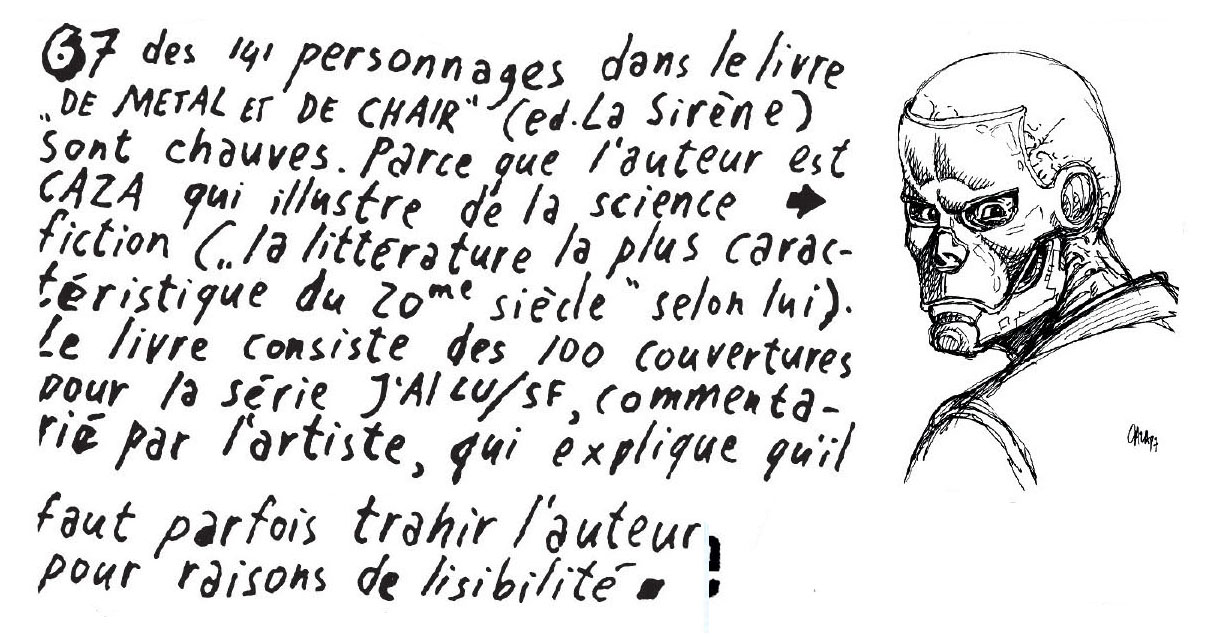 67 des 141 personnages dans le livre
„DE METAL ET DE CHAIR" (ed. La Sirène)
sont chauves. Parce que l'auteur est
CAZA qui illustre de la science ➡
fiction („la littérature la plus carac-
téristique du 20me siècle" selon lui).
Le livre consiste des 100 couvertures
pour la série J'AI LU/SF, commenta-
rié par l'artiste, qui explique qu'il
faut parfois trahir l'auteur
pour raisons de lisibilité.